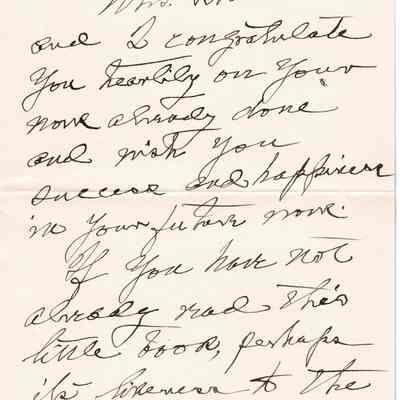 Mrs.
and I congratulate
You heartily on Your
work already done
and wish you
success and happiness
in Your future work.
If You have not
already read this
little book, perhaps
its likeness to the